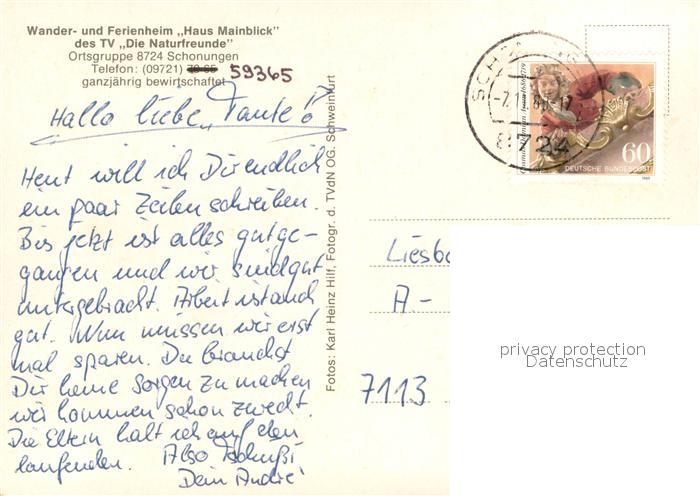 Wander- und Ferienheim „Haus Mainblick"
des TV „Die Naturfreunde"
Ortsgruppe 8724 Schonungen
Telefon: (09721) 59365
ganzjährig bewirtschaftet
Hallo liebe „Tante"!
Heut will ich Dir endlich
ein paar Zeilen schreiben.
Bis jetzt ist alles gutge-
gangen und wir sind gut
untergebracht. Arbeit ist auch
gut. Nun müssen wir erst
mal sparen. Du brauchst
Dir keine Sorgen zu machen
wir kommen schon zurecht.
Die Eltern halt ich auf den
laufenden. Also Tschüßi
Dein André
Fotos: Karl Heinz Hilf, Fotogr. d. TVdN OG. Schweinfurt
8724
60
DEUTSCHE BUNDESPOST
Liesbe
A-
7113
privacy protection
Datenschutz